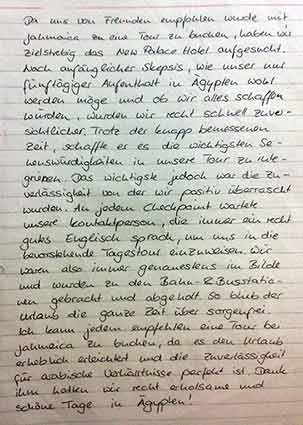 Da uns von Freunden empfohlen wurde mit
jahmaica zu eine Tour zu buchen, haben wir
zielstrebig das New Palace Hotel aufgesucht.
Nach anfänglicher Skepsis, wie unser nur
fünftägiger Aufenthalt in Ägypten wohl
werden möge und ob wir alles schaffen
würden, wurden wir recht schnell zuver-
sichtlicher. Trotz der knapp bemessenen
Zeit, schaffte er es die wichtigsten Se-
henswürdigkeiten in unsere Tour zu inte-
grieren. Das wichtigste jedoch war die Zu-
verlässigkeit von der wir positiv überrascht
wurden. An jedem Checkpoint wartete
unsere Kontaktperson, die immer ein recht
gutes Englisch sprach, um uns in die
bevorstehende Tagestour einzuweisen. Wir
waren also immer genauestens im Bilde
und wurden zu den Bahn- & Busstatio-
nen gebracht und abgeholt. So blieb der
Urlaub die ganze Zeit über sorgenfrei.
Ich kann jedem empfehlen eine Tour bei
jahmaica zu buchen, da es den Urlaub
erheblich erleichtert und die Zuverlässigkeit
für arabische Verhältnisse perfekt ist. Dank
ihm hatten wir recht erholsame und
schöne Tage in Ägypten!